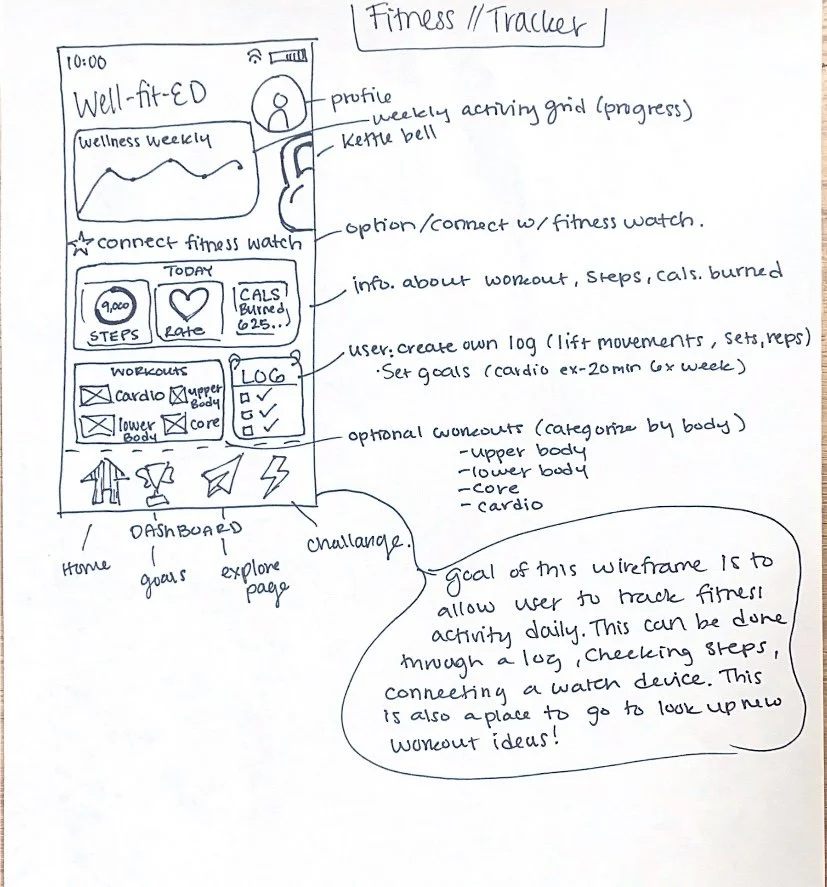 Fitness // Tracker
10:00
Well-fit-ED
profile
weekly activity grid (progress)
Kettle bell
Wellness Weekly
option/connect w/ fitness watch.
connect fitness watch
TODAY
info. about workout, steps, cals. burned
9,000
STEPS
Rate
CALS
Burned
625...
user: create own log (lift movements, sets, reps)
· Set goals (cardio ex-20min 6x week)
WORKOUTS
cardio
upper
Body
lower
Body
core
LOG
optional workouts (categorize by body)
- upper body
- lower body
- core
- cardio
DASHBOARD
Home
goals
explore
page
challange.
goal of this wireframe is to
allow user to track fitness
activity daily. This can be done
through a log, checking steps,
connecting a watch device. This
is also a place to go to look up new
workout ideas!